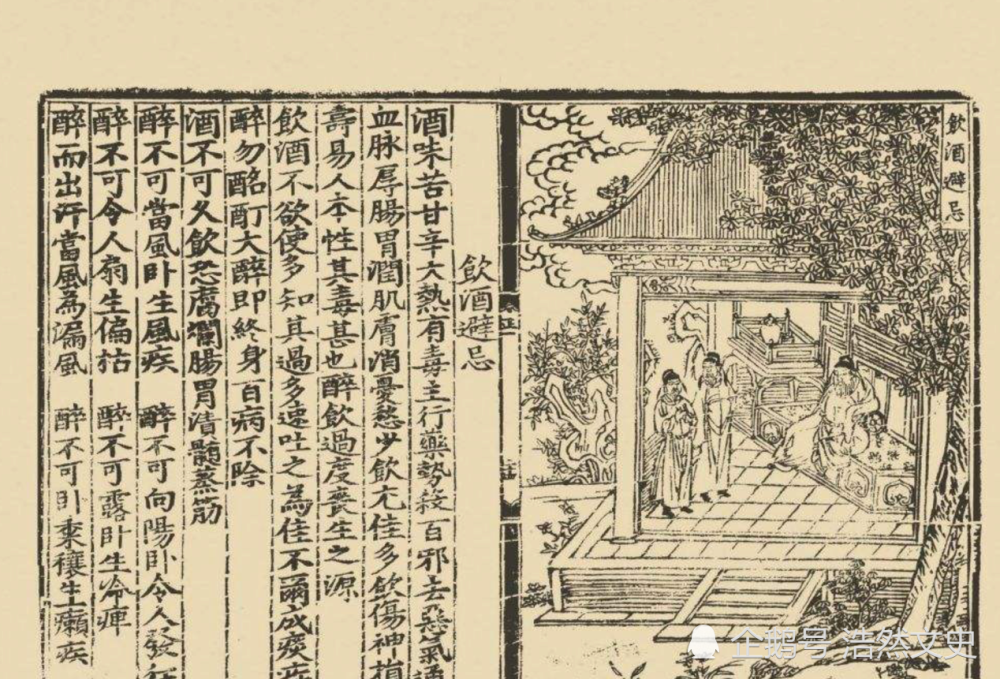 飲酒避忌
飲酒避忌
酒味苦甘辛大熱有毒主行藥勢殺百邪去惡氣通
血脉厚腸胃潤肌膚消憂愁少飲尤佳多飲傷神損
壽易人本性其毒甚也醉飲過度喪生之源
飲酒不欲使多知其過多速吐之為佳不爾成痰疾
醉勿酩酊大醉即終身百病不除
酒不可久飲恐腐爛腸胃漬髓蒸筋
醉不可當風卧生風疾 醉不可向陽卧令人發狂
醉不可令人扇生偏枯 醉不可露卧生冷痺
醉而出汗當風為漏風 醉不可卧黍穰生癩疾
企鹅号 浩然文史